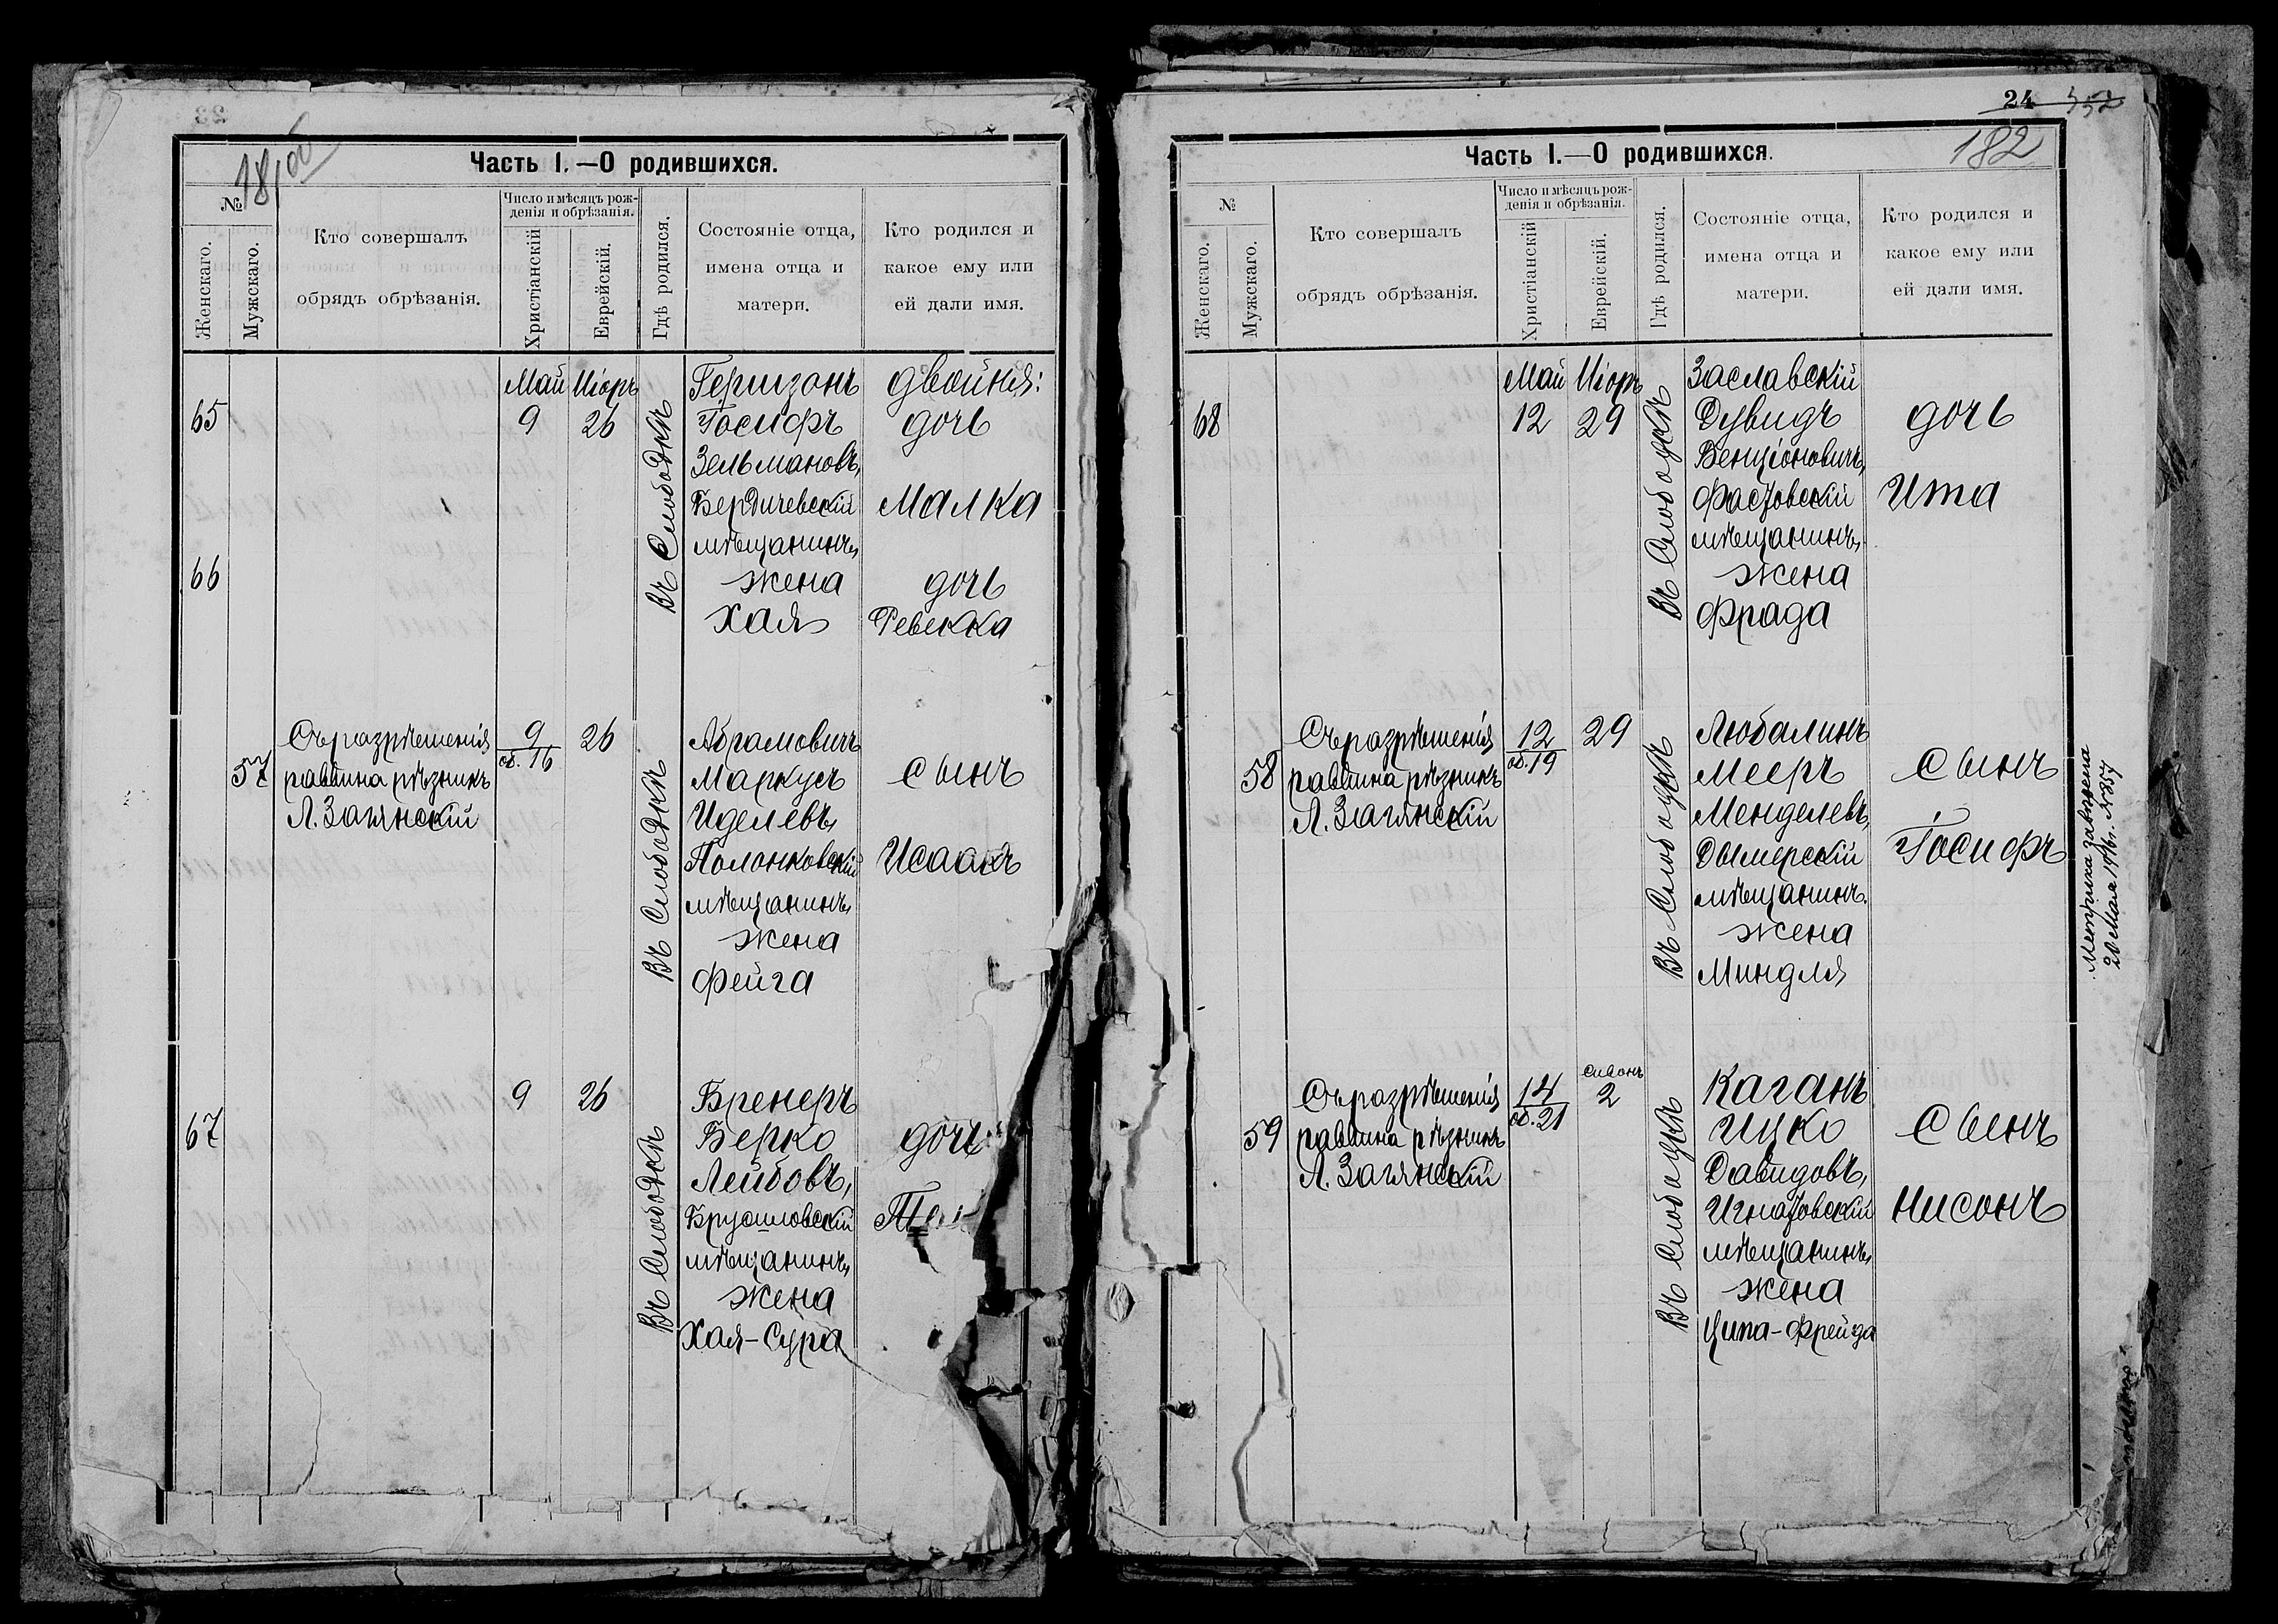 181об
Часть I.—О родившихся.
№
Женскаго.
Мужскаго.
Кто совершалъ
обрядъ обрѣзанія.
Число и мѣсяцъ рож-
денія и обрѣзанія.
Христіанскій
Еврейскій.
Гдѣ родился.
Состояніе отца,
имена отца и
матери.
Кто родился и
какое ему или
ей дали имя.
Май Иіоръ Гершзонъ двойня:
65 9 26 Іосифъ дочь
Зельмановъ,
Бердичевскій Малка
мѣщанинъ,
66 жена дочь
Хая Ревекка
Въ Слободкѣ
Съ разрѣшенія 9 26 Абрамовичъ
57 раввина рѣзникъ об. 16 Маркусъ сынъ
Л. Загянскій Иделевъ,
Полонковскій Исаакъ
мѣщанинъ,
жена
Фейга
Въ Слободкѣ
9 26 Бренеръ
67 Берко дочь
Лейбовъ,
Брусиловскій
мѣщанинъ,
жена
Хая-Сура
Въ Слободкѣ
24
182
Часть I.—О родившихся.
№
Женскаго.
Мужскаго.
Кто совершалъ
обрядъ обрѣзанія.
Число и мѣсяцъ рож-
денія и обрѣзанія.
Христіанскій
Еврейскій.
Гдѣ родился.
Состояніе отца,
имена отца и
матери.
Кто родился и
какое ему или
ей дали имя.
Май Иіоръ Заславскій
68 12 29 Дувидъ дочь
Бенціоновичъ,
Фастовскій Ита
мѣщанинъ,
жена
Фрада
Въ Слободкѣ
Съ разрѣшенія 12 29 Любалинъ
58 раввина рѣзникъ об. 19 Мееръ сынъ
Л. Загянскій Менделевъ,
Дымерскій Іосифъ
мѣщанинъ.
жена
Миндля
Въ Слободкѣ
Метрика заверена
20 Мая 1916г. №357
сивонъ
Съ разрѣшенія 14 2 Каганъ
59 раввина рѣзникъ об. 21 Ицко сынъ
Л. Загянскій Давидовъ,
Игнатовскій Нисонъ
мѣщанинъ,
жена
Ципа-Фрейда
Въ Слободкѣ